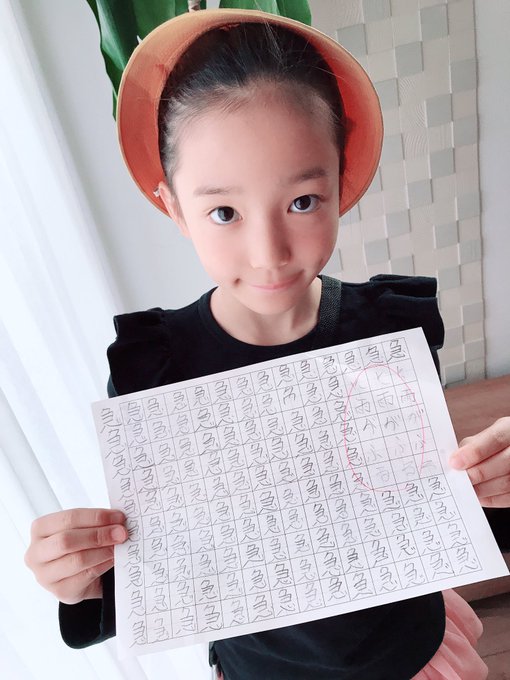 急急急急急急急急急急急急急急
急急急急急急急急急急急
急急急急急急急急急急急雨雨雨
急急急急急急急急急急急ががが
急急急急急急急急急急急ふふふ
急急急急急急急急急急急るるる
急急急急急急急急急急急急急急
急急急急急急急急急急急急急急
急急急急急急急急急急急急急急
急急急急急急急急急急急急急急